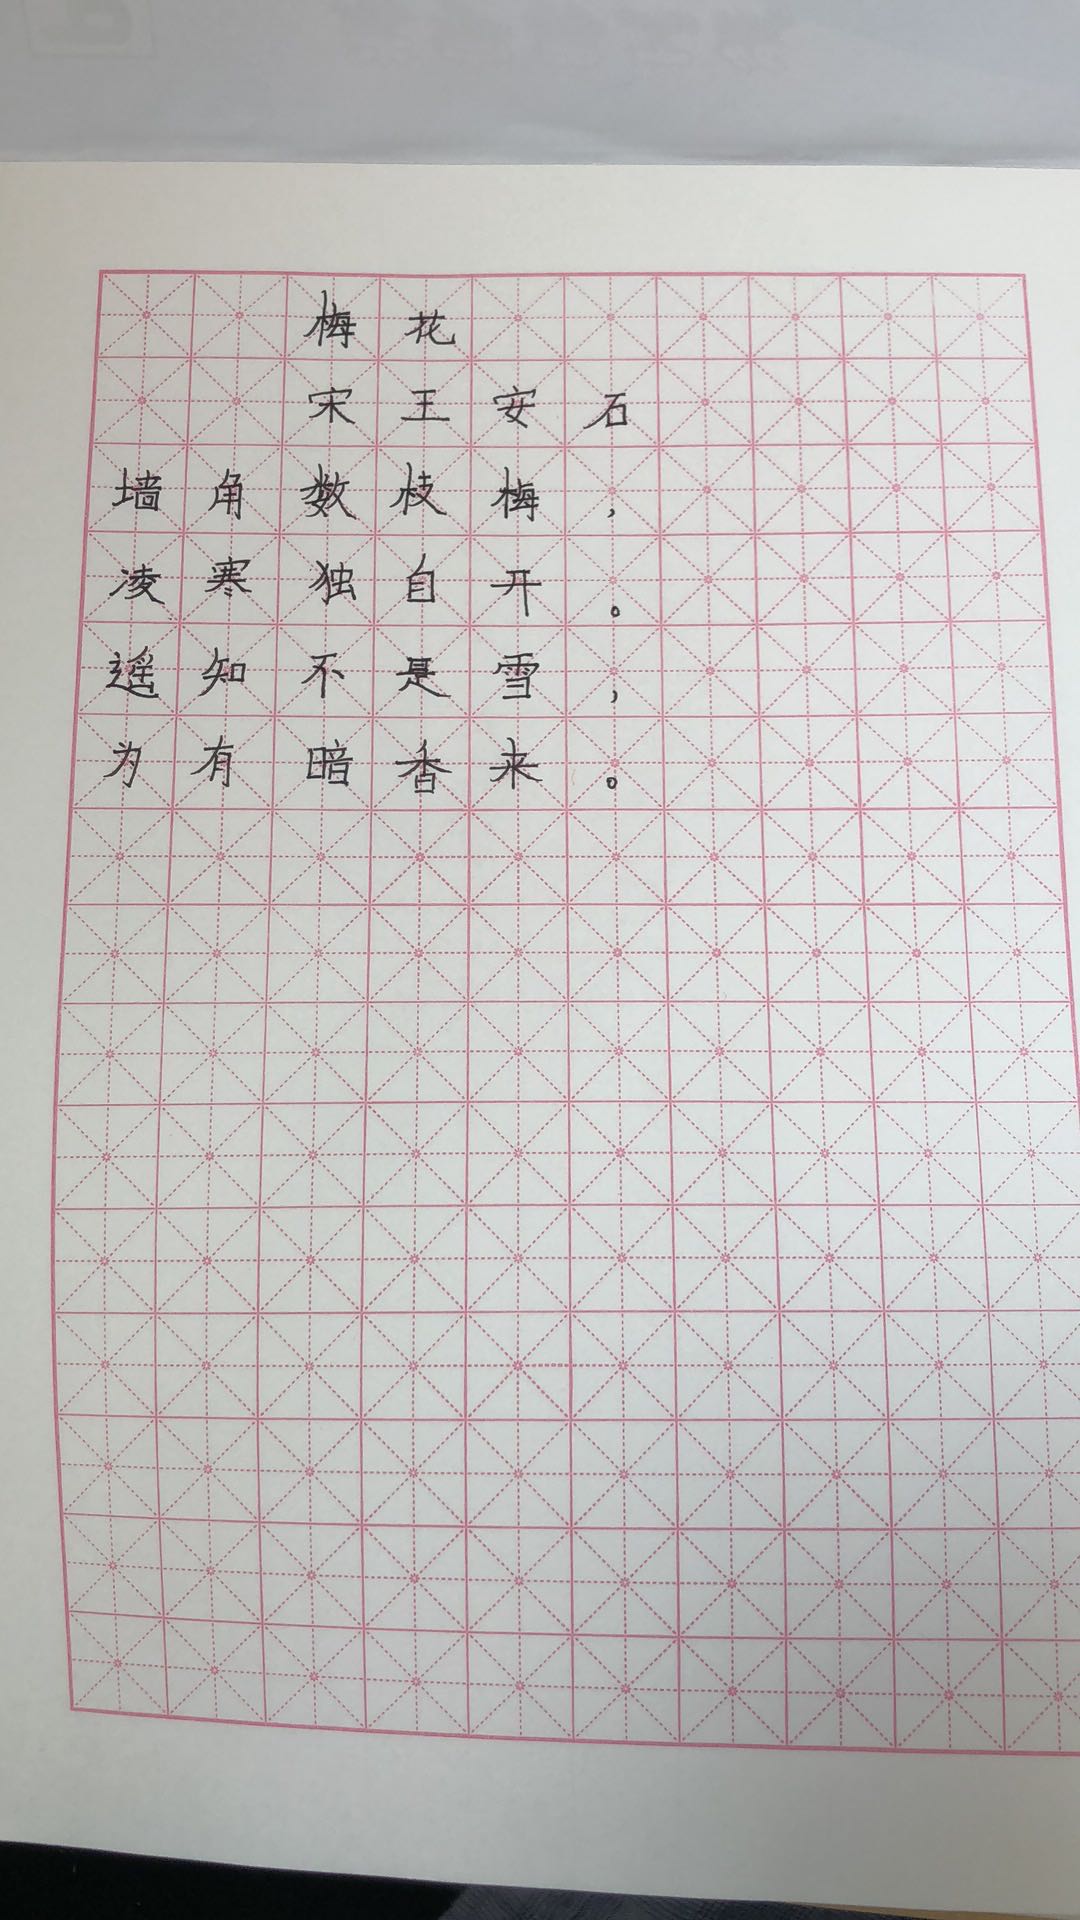 梅花
宋王安石
墙角数枝梅，
凌寒独自开。
遥知不是雪，
为有暗香来。